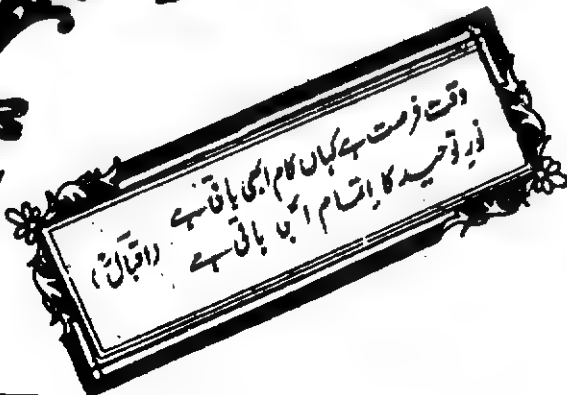 وقت فرصت ہے کہاں کام ابھی باقی ہے
نورِ توحید کا اتمام ابھی باقی ہے (اقبالؒ)